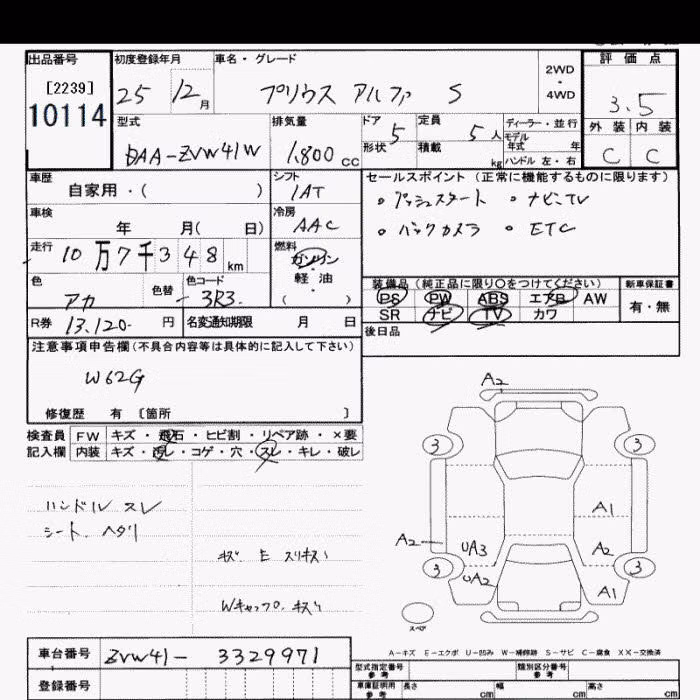 出品番号
[2239]
10114
初度登録年月
25 12月
車名・グレード
プリウス アルファ S
2WD
・
4WD
評価点
3.5
外装 内装
C C
型式
DAA-ZVW41W
排気量
1,800 cc
ドア 5
形状
定員 5人
積載 kg
ディーラー・並行
モデル
年式 年
ハンドル 左・右
車歴
自家用・( )
シフト
IAT
セールスポイント(正常に機能するものに限ります)
。プッシュスタート 。ナビ、TV
。バックカメラ 。ETC
車検
年 月( 日)
冷房
AAC
走行
10万7千348km
燃料
ガソリン
・
軽油
( )
色
アカ
色替
色コード
3R3
装備品(純正品に限り〇をつけてください)
PS PW ABS エアB AW
SR ナビ TV カワ
新車保証書
有・無
R券 13,120- 円
名変通知期限 月 日
後日品
注意事項申告欄(不具合内容等は具体的に記入して下さい)
W62G
修復歴 有〔箇所 〕
検査員
記入欄
FW キズ・飛石・ヒビ割・リペア跡・×要
内装 キズ・汚レ・コゲ・穴・スレ・キレ・破レ
ハンドル スレ
シート ヘタリ
キズ E スリキズ
Wキャップ キズ
A2
3 3
A1
A2 UA3 A2
3 UA2 3
A1
スペア
A-キズ E-エクボ U-凹み W-補修跡 S-サビ C-腐食 XX-交換済
車台番号 ZVW41-3329971
登録番号
型式指定番号
参考
類別区分番号
参考
車庫証明用
参考
長さ cm 幅 cm 高さ cm